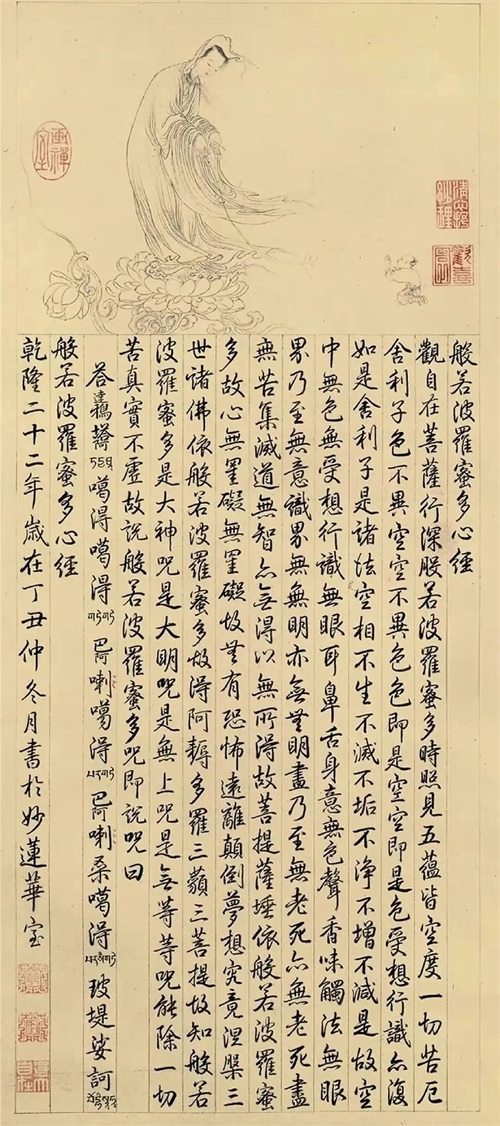 畫禪室
般若波羅蜜多心經
觀自在菩薩行深般若波羅蜜多時照見五蘊皆空度一切苦厄
舍利子色不異空空不異色色即是空空即是色受想行識亦復
如是舍利子是諸法空相不生不滅不垢不淨不增不減是故空
中無色無受想行識無眼耳鼻舌身意無色聲香味觸法無眼
界乃至無意識界無無明亦無無明盡乃至無老死亦無老死盡
無苦集滅道無智亦無得以無所得故菩提薩埵依般若波羅蜜
多故心無罣礙無罣礙故無有恐怖遠離顛倒夢想究竟涅槃三
世諸佛依般若波羅蜜多故得阿耨多羅三藐三菩提故知般若
波羅蜜多是大神呪是大明呪是無上呪是無等等呪能除一切
苦真實不虛故說般若波羅蜜多呪即說呪曰
荅 噶得噶得 巴阿喇噶得 巴阿喇桑噶得 玻堤娑訶
般若波羅蜜多心經
乾隆二十二年歲在丁丑仲冬月書於妙蓮華室